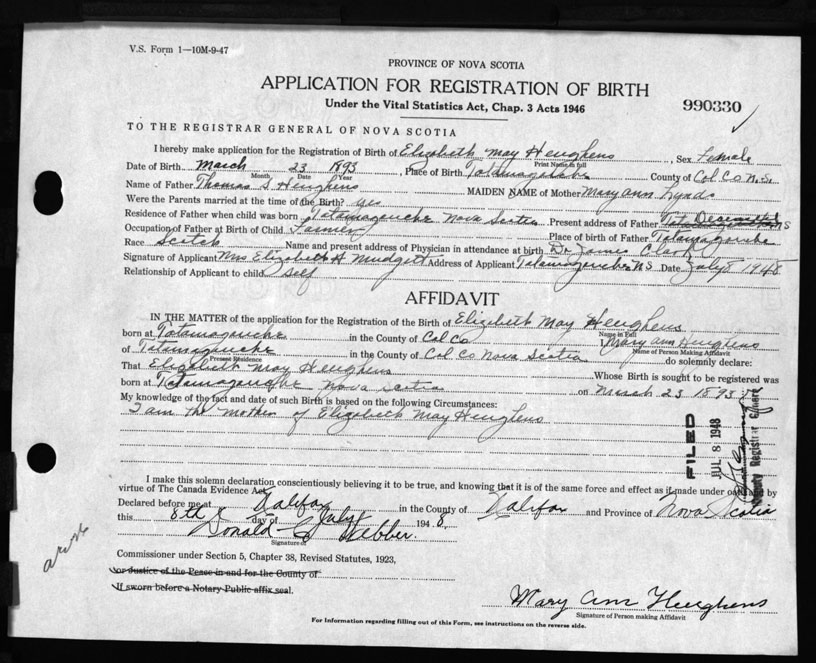 V.S. Form 1—10M-9-47
PROVINCE OF NOVA SCOTIA
APPLICATION FOR REGISTRATION OF BIRTH
Under the Vital Statistics Act, Chap. 3 Acts 1946
990330 ✓
TO THE REGISTRAR GENERAL OF NOVA SCOTIA
I hereby make application for the Registration of Birth of Elizabeth May Heughens, Sex Female
Print Name in full
Date of Birth March 23 1893, Place of Birth Tatamagouche County of Col Co N.S.
Month Day Year
Name of Father Thomas S Heughens MAIDEN NAME of Mother Mary Ann
Were the Parents married at the time of the Birth? yes
Residence of Father when child was born Tatamagouche Nova Scotia Present address of Father Deceased
Occupation of Father at Birth of Child Farmer Place of birth of Father Tatamagouche
Race Scotch Name and present address of Physician in attendance at birth Dr James Clark
Signature of Applicant Mrs Elizabeth H Mudgett Address of Applicant Tatamagouche N.S. Date July 8 1948
Relationship of Applicant to child Self
AFFIDAVIT
IN THE MATTER of the application for the Registration of the Birth of Elizabeth May Heughens
Name in Full
born at Tatamagouche in the County of Col Co I, Mary Ann Heughens
Name of Person Making Affidavit
of Tatamagouche in the County of Col Co Nova Scotia do solemnly declare:
Present Residence
That Elizabeth May Heughens Whose Birth is sought to be registered was
born at Tatamagouche Nova Scotia on March 23 1893
My knowledge of the fact and date of such Birth is based on the following Circumstances:
I am the Mother of Elizabeth May Heughens
FILED
JUL 8 1948
Deputy Registrar General
I make this solemn declaration conscientiously believing it to be true, and knowing that it is of the same force and effect as if made under oath by
virtue of The Canada Evidence Act.
Declared before me at Halifax in the County of Halifax and Province of Nova Scotia
this 8th day of July 1948
Donald C Webber.
Signature of
Commissioner under Section 5, Chapter 38, Revised Statutes, 1923,
or Justice of the Peace in and for the County of
If sworn before a Notary Public affix seal.
Mary Ann Heughens
Signature of Person making Affidavit
For Information regarding filling out of this Form, see instructions on the reverse side.